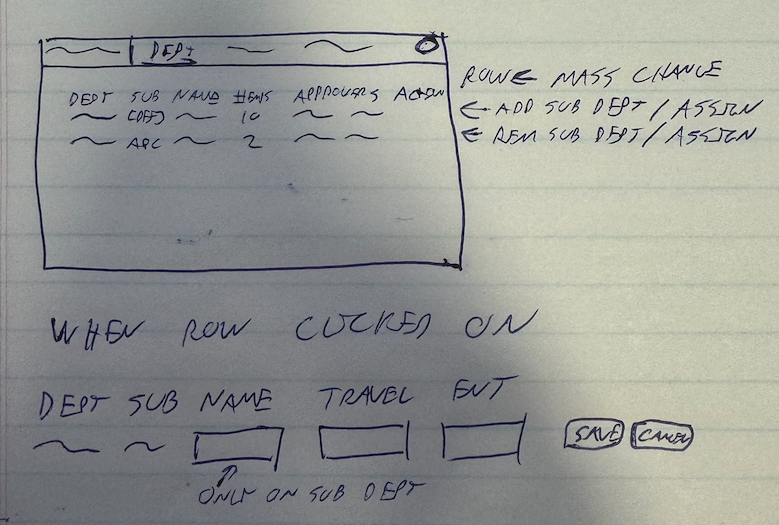 DEPT
DEPT SUB NAME ITEMS APPROVERS ACTION
10
ARC 2
ROW ← MASS CHANGE
← ADD SUB DEPT / ASSIGN
← REM SUB DEPT / ASSIGN
WHEN ROW CLICKED ON
DEPT SUB NAME TRAVEL ENT
SAVE CANCEL
ONLY ON SUB DEPT